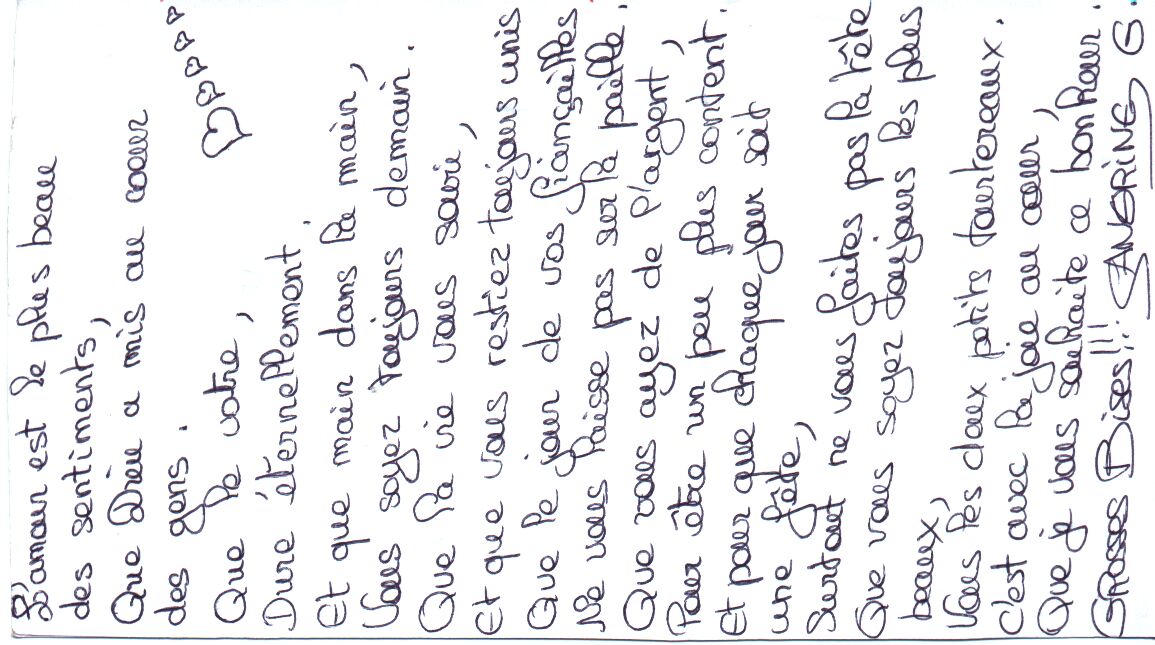 L'amour est le plus beau
des sentiments,
Que Dieu a mis au coeur
des gens.
Que le votre,
Dure éternellement.
Et que main dans la main,
Vous soyez toujours demain.
Que la vie vous sourie,
Et que vous restiez toujours unis
Que le jour de vos fiançailles
Ne vous laisse pas sur la paille.
Que vous ayez de l'argent,
Pour être un peu plus content.
Et pour que chaque jour soit
une fête,
Surtout ne vous faites pas la tête
Que vous soyez toujours les plus
beaux,
Vous les deux petits tourtereaux.
C'est avec la joie au coeur,
Que je vous souhaite ce bonheur.
GROSSES Bises!!! SANDRINE G